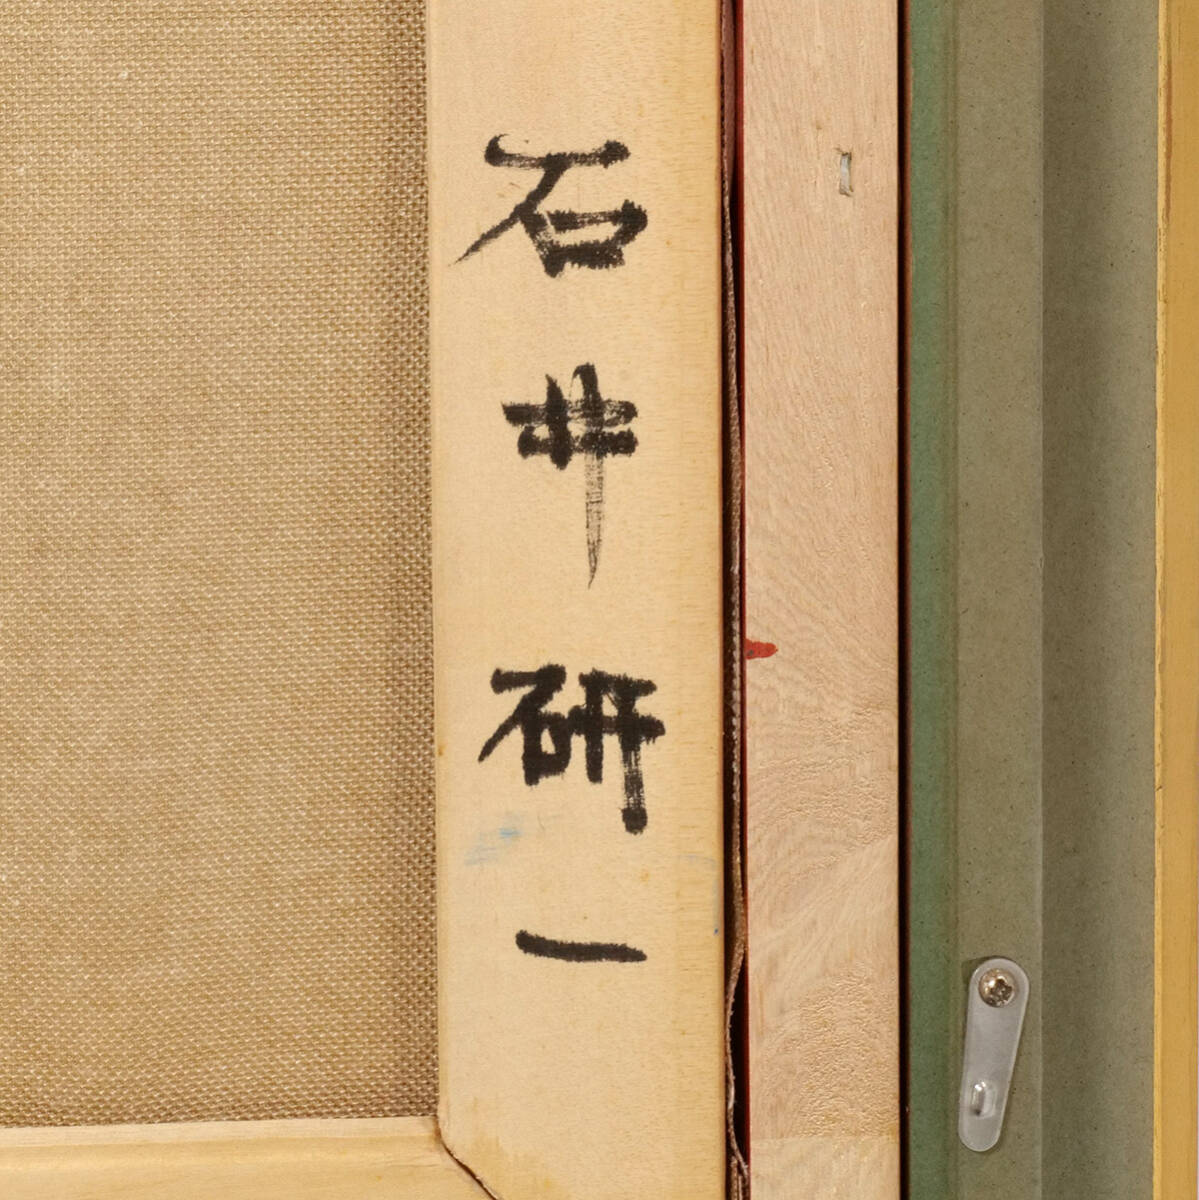 石井研一